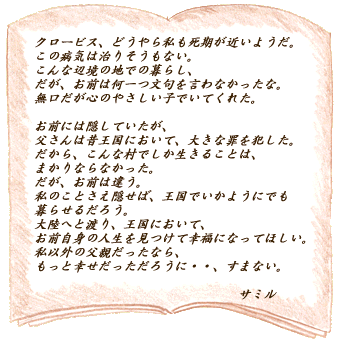 クロービス、どうやら私も死期が近いようだ。
この病気は治りそうもない。
こんな辺境の地での暮らし、
だが、お前は何一つ文句を言わなかったな。
無口だが心のやさしい子でいてくれた。
お前には隠していたが、
父さんは昔王国において、大きな罪を犯した。
だから、こんな村でしか生きることは、
まかりならなかった。
だが、お前は違う。
私のことさえ隠せば、王国でいかようにでも
暮らせるだろう。
大陸へと渡り、王国において、
お前自身の人生を見つけて幸福になってほしい。
私以外の父親だったなら、
もっと幸せだっただろうに・・、すまない。
サミル